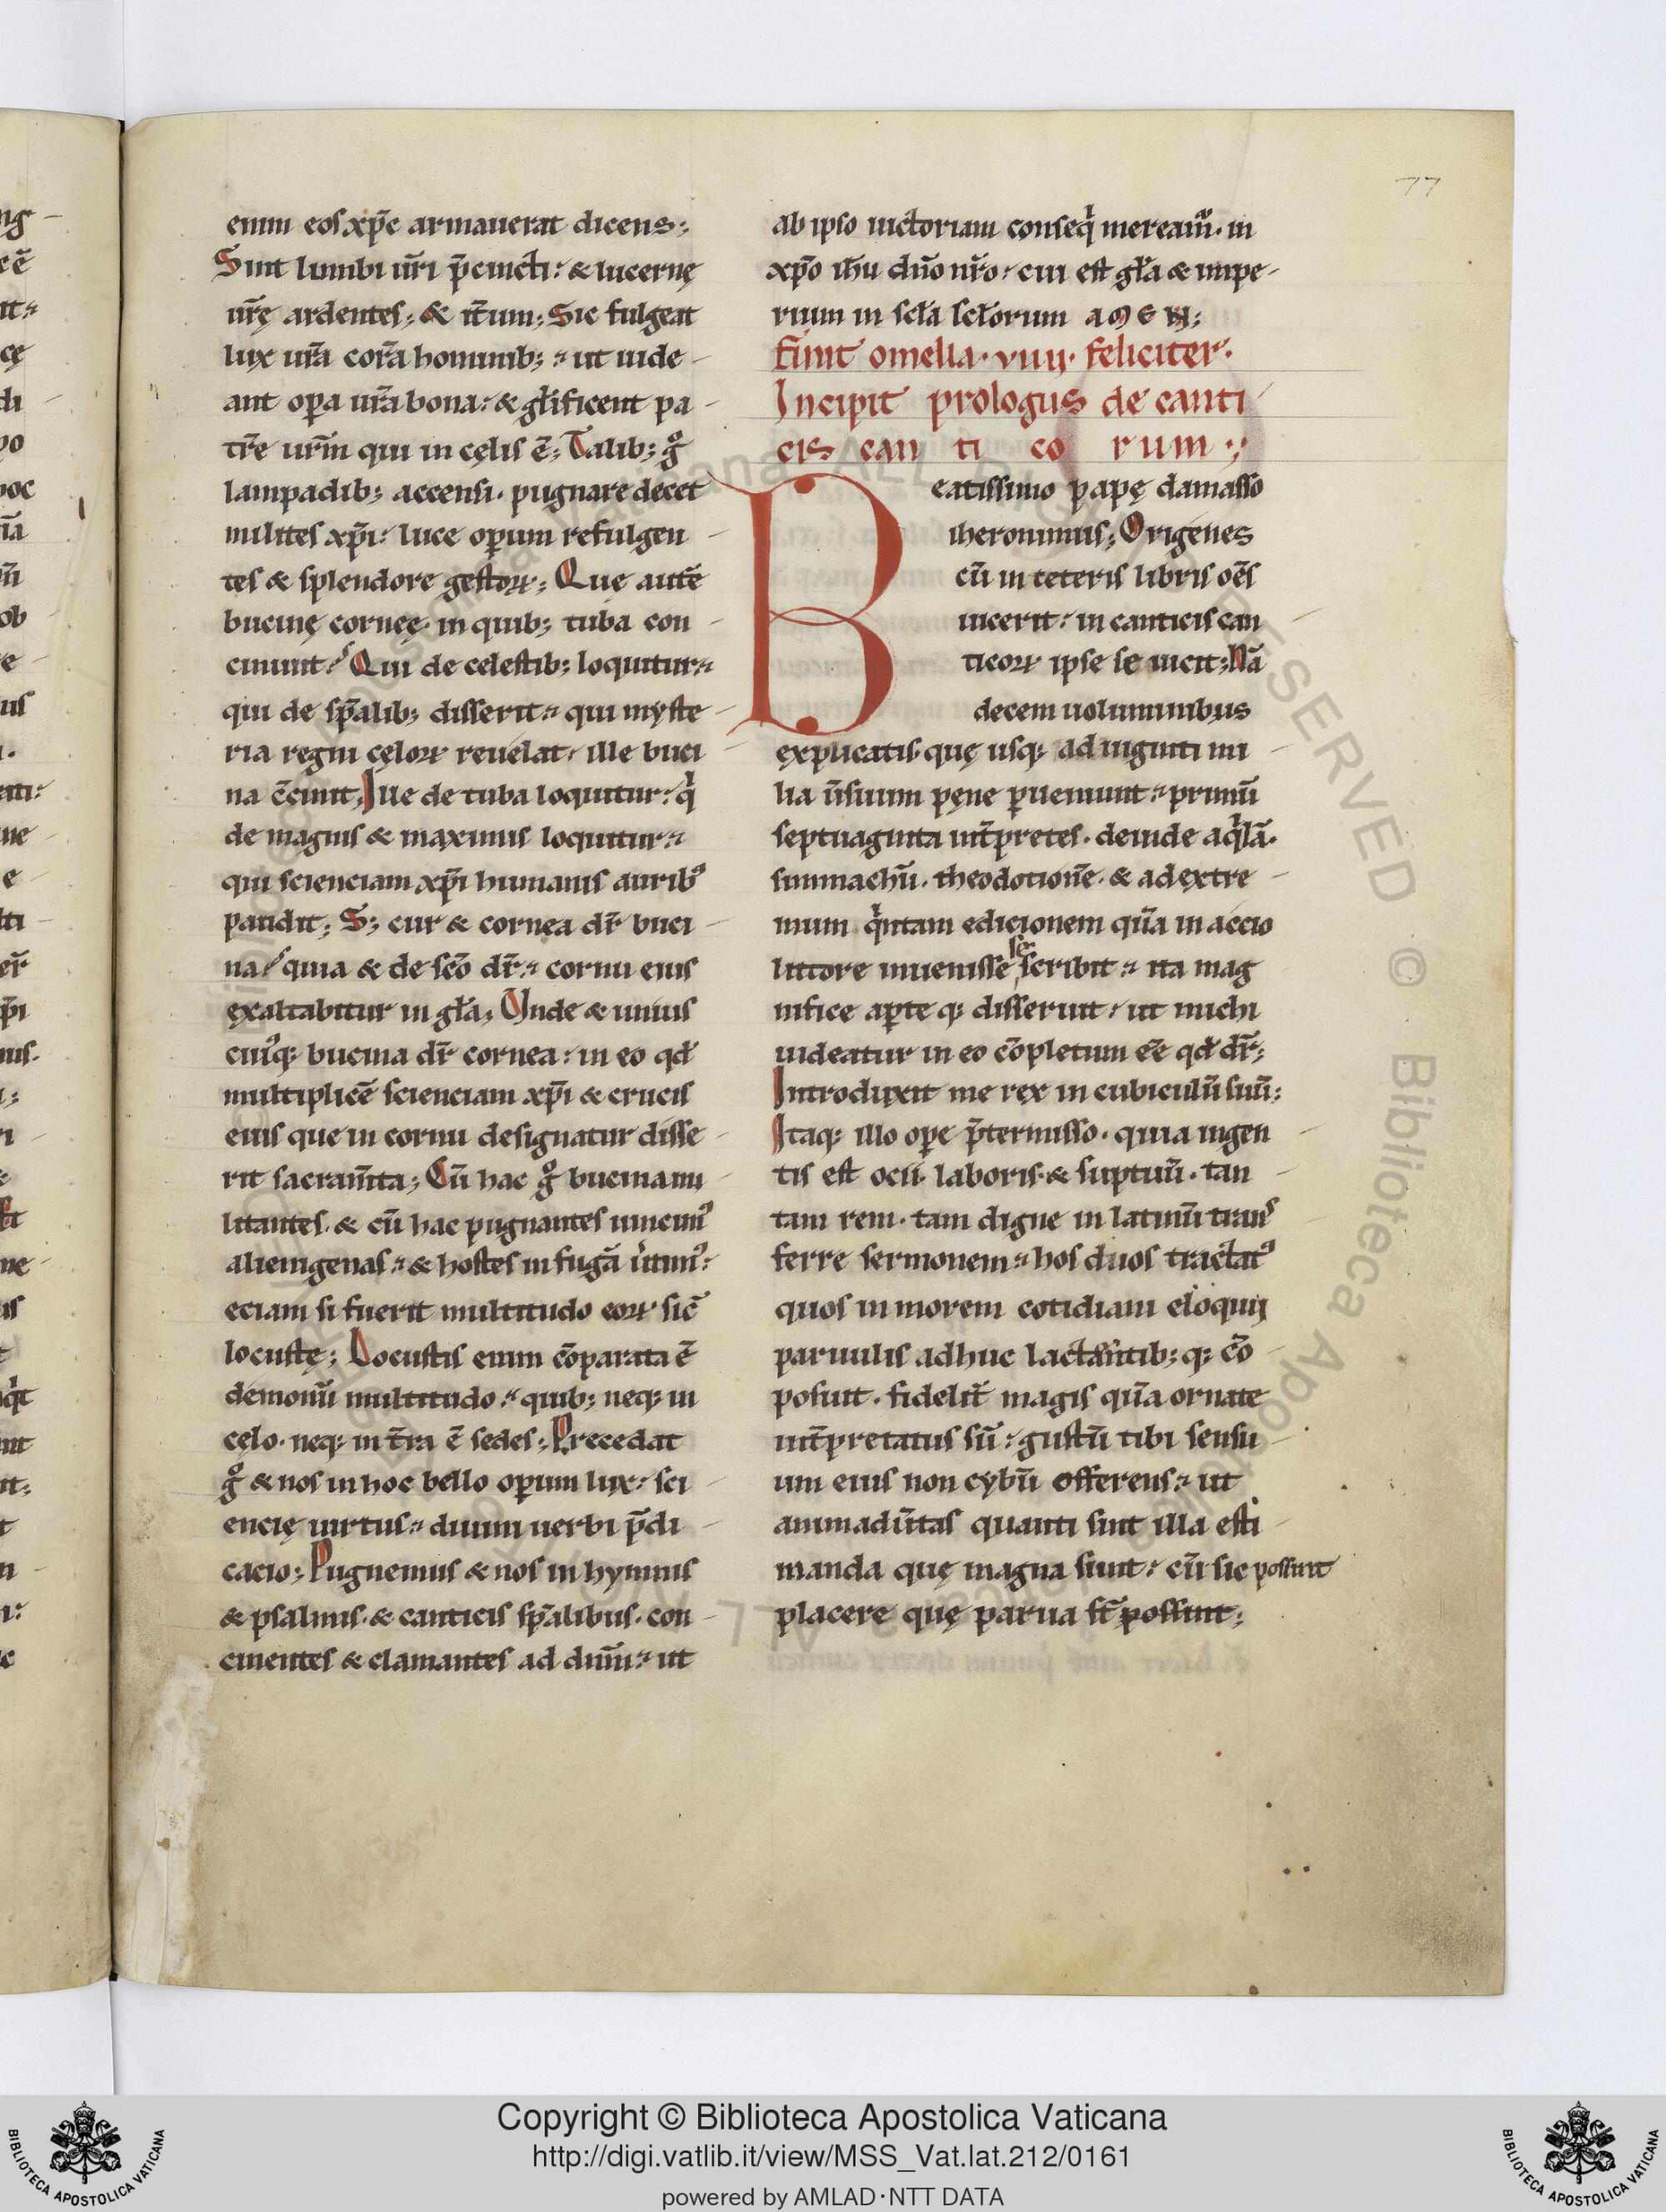 enim eos xp̄c armauerat dicens;
Sint lumbi ur̄i p̄cincti: & lucernę
ur̄ę ardentes; & it̄um; Sic fulgeat
lux ur̄a corā hominib; ut uide-
ant opa ur̄a bona: & gl̄ificent pa-
tr̄e ur̄m qui in cęlis ē; Talib; gͦ
lampadib; accensi. pugnare decet
milites xp̄i: luce operum refulgen-
tes & splendore gestoꝝ; Que autē
bucinę corneę. in quib; tuba con-
cinunt? Qui de celestib; loquitur
qui de sp̄alib; disserit qui myste-
ria regni cęloꝝ reuelat. ille buci-
na c̄cinit; Ille de tuba loquitur: qͥ
de magnis & maximis loquitur
qui scienciam xp̄i humanis auribꝰ
pandit; S; cur & cornea dr̄ buci-
na? quia & de sc̄o dr̄ cornu eius
exaltabitur in gl̄a; Unde & unius
cuiꝰq; bucina dr̄ cornea: in eo qd̄
multiplicē scienciam xp̄i & crucis
eius que in cornu designatur disse-
rit sacram̄ta; Cū hac gͦ bucina mi-
litantes. & cū hac pugnantes uincimꝰ
alienigenas & hostes in fugā uͥtimꝰ:
eciam si fuerit multitudo eoꝝ sic̄
locustę; Locustis enim cōparata ē
demonū multitudo quib; neq; in
cęlo. neq; in t̄ra ē sedes; Precedat
gͦ & nos in hoc bello operum lux: sci-
encię uirtus diuini uerbi p̄di-
cacio; Pugnemus & nos in hymnis
& psalmis. & canticis sp̄alibus. con-
cinentes & clamantes ad dnm̄ ut
ab ipso uictoriam conseqͥ mereamᷣ. in
xp̄o ih̄u dn̄o nr̄o: cui est gl̄a & impe-
rium in scl̄a scl̄orum AMEN;
finit omelia. viiij. feliciter.
Incipit prologus de canti-
cis can ti co rum;
Beatissimo papę damasso
iheronimus; Origenes
cū in ceteris libris oēs
uicerit: in canticis can-
ticoꝝ ipse se uicit; Nā
decem uoluminibus
explicatis. quę usq; ad uiginti mi-
lia ūsuum pęne ꝑueniunt primū
septuaginta int̄pretes. deinde aqͥlā.
simmachū. theodotionē. & ad extre-
mum qͥntam edicionem qūa in accio
littore inuenisse se scribit ita mag
nifice aperte q; disseruit: ut michi
uideatur in eo cōpletum eē qd̄ dr̄;
Introduxit me rex in cubiculū suū;
Itaq; illo ope p̄termisso. quia ingen-
tis est ocii. laboris. & suptuū. tan-
tam rem. tam digne in latinū trans
ferre sermonem hos duos tractatꝰ
quos in morem cotidiani eloquij
paruulis adhuc lactantib; q; cō-
posuit. fidelit̄ magis qūa ornate
int̄pretatus sū: gustū tibi sensu-
um eius non cybū offerens ut
animadūtas quanti sint illa esti-
manda quę magna sunt: cū sic possunt
placere quę parua st̄ possunt;
77
Copyright © Biblioteca Apostolica Vaticana
http://digi.vatlib.it/view/MSS_Vat.lat.212/0161
powered by AMLAD·NTT DATA
BIBLIOTECA APOSTOLICA VATICANA
BIBLIOTECA APOSTOLICA VATICANA